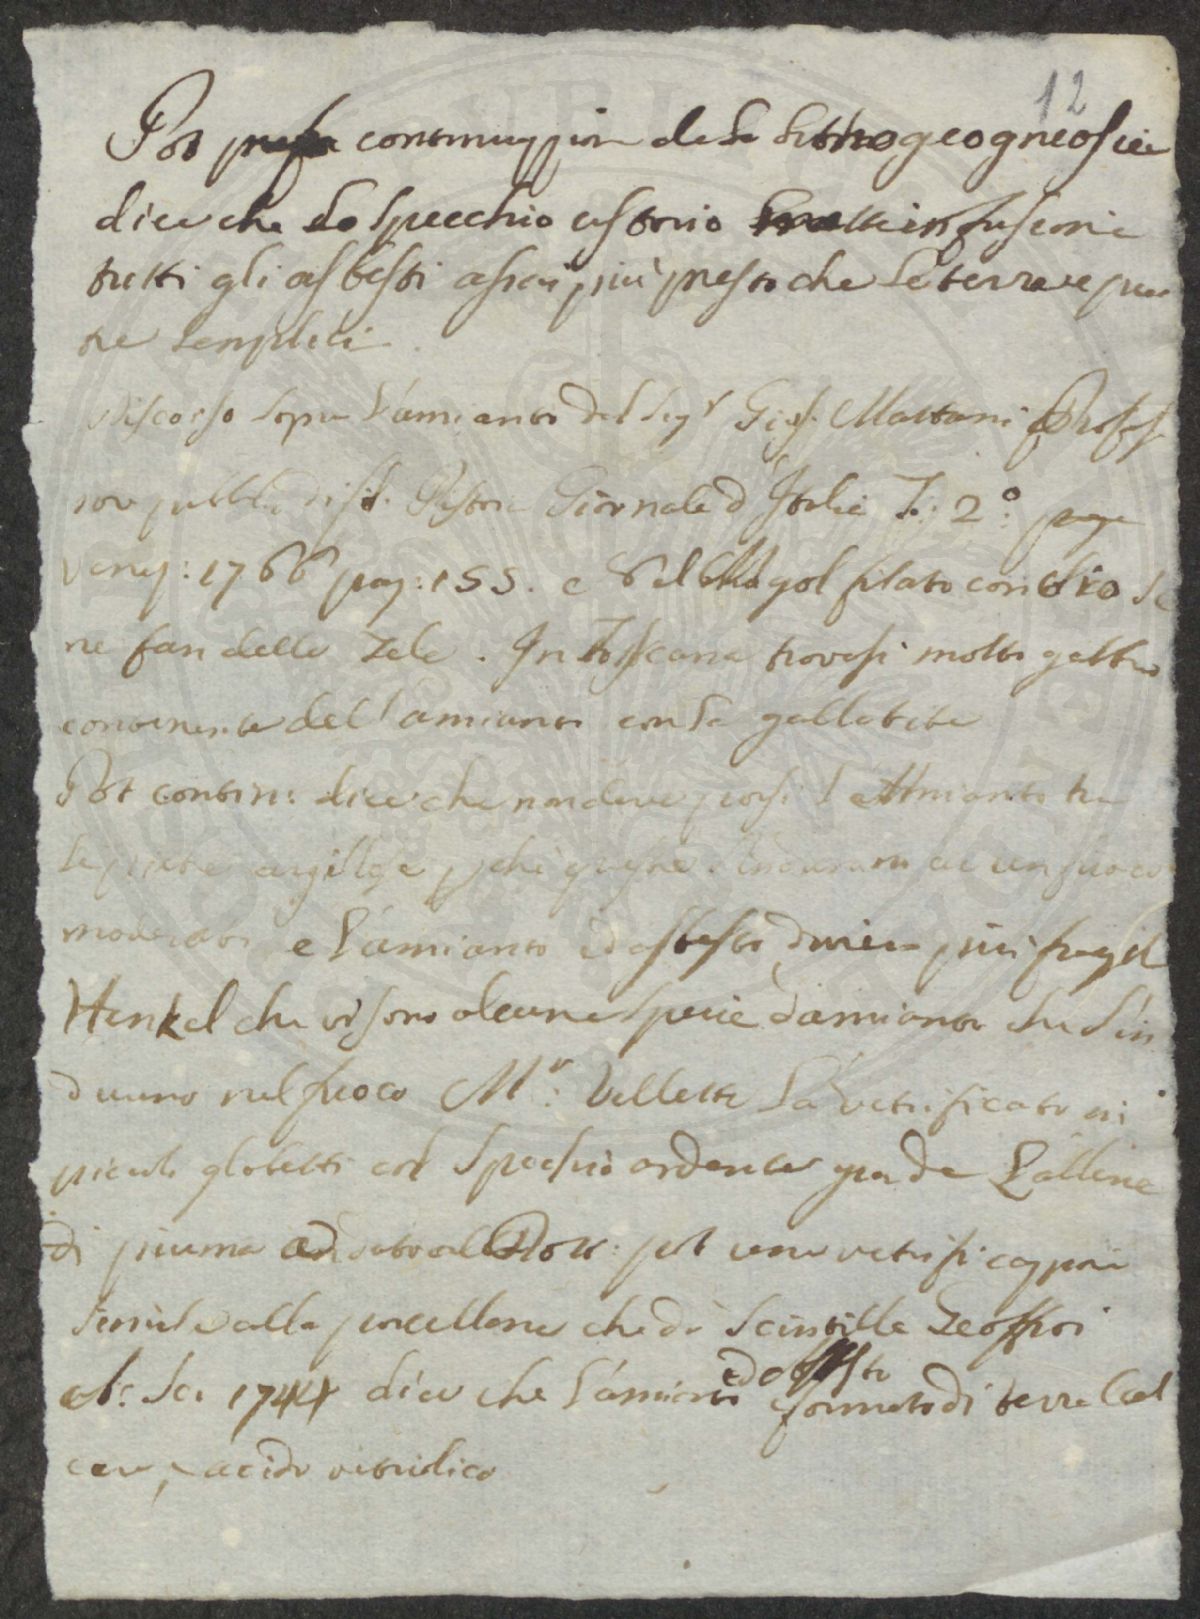 12
Pot continuazion de la Lithogeognosie
dice che lo specchio ustorio mette in fusione
tutti gli asbesti assai più presto che le terre e pie
tre semplici
Discorso sopra l'amianto del Sigr Gios. Mattani Profes
sor pubbli Giornale d'Italia T. 2.º
Venez: 1766 pag: 155. e filato con olio se
ne fan delle Tele. In Toscana trovasi molto gabbro
contenente dell'amianto con la gallatite
Pot contin: dice che non deve porsi l'Amianto tra
le pietre argillose pchè queste indurano a un fuoco
moderato e l'amianto ed asbesto divien più fragil
Henkel che vi sono alcune specie d'amianto che s'in
durano nel fuoco Mr: Vallette l'à vetrificato in
picoli globetti col specchio ardente
di piuma Pott: una vetrificazion
simile alla porcellana che dà scintille Geoffroi
Ac: Sc. 1744 dice che l'amianto ed asbesto è formato di terra Cal
car e acido vitriolico